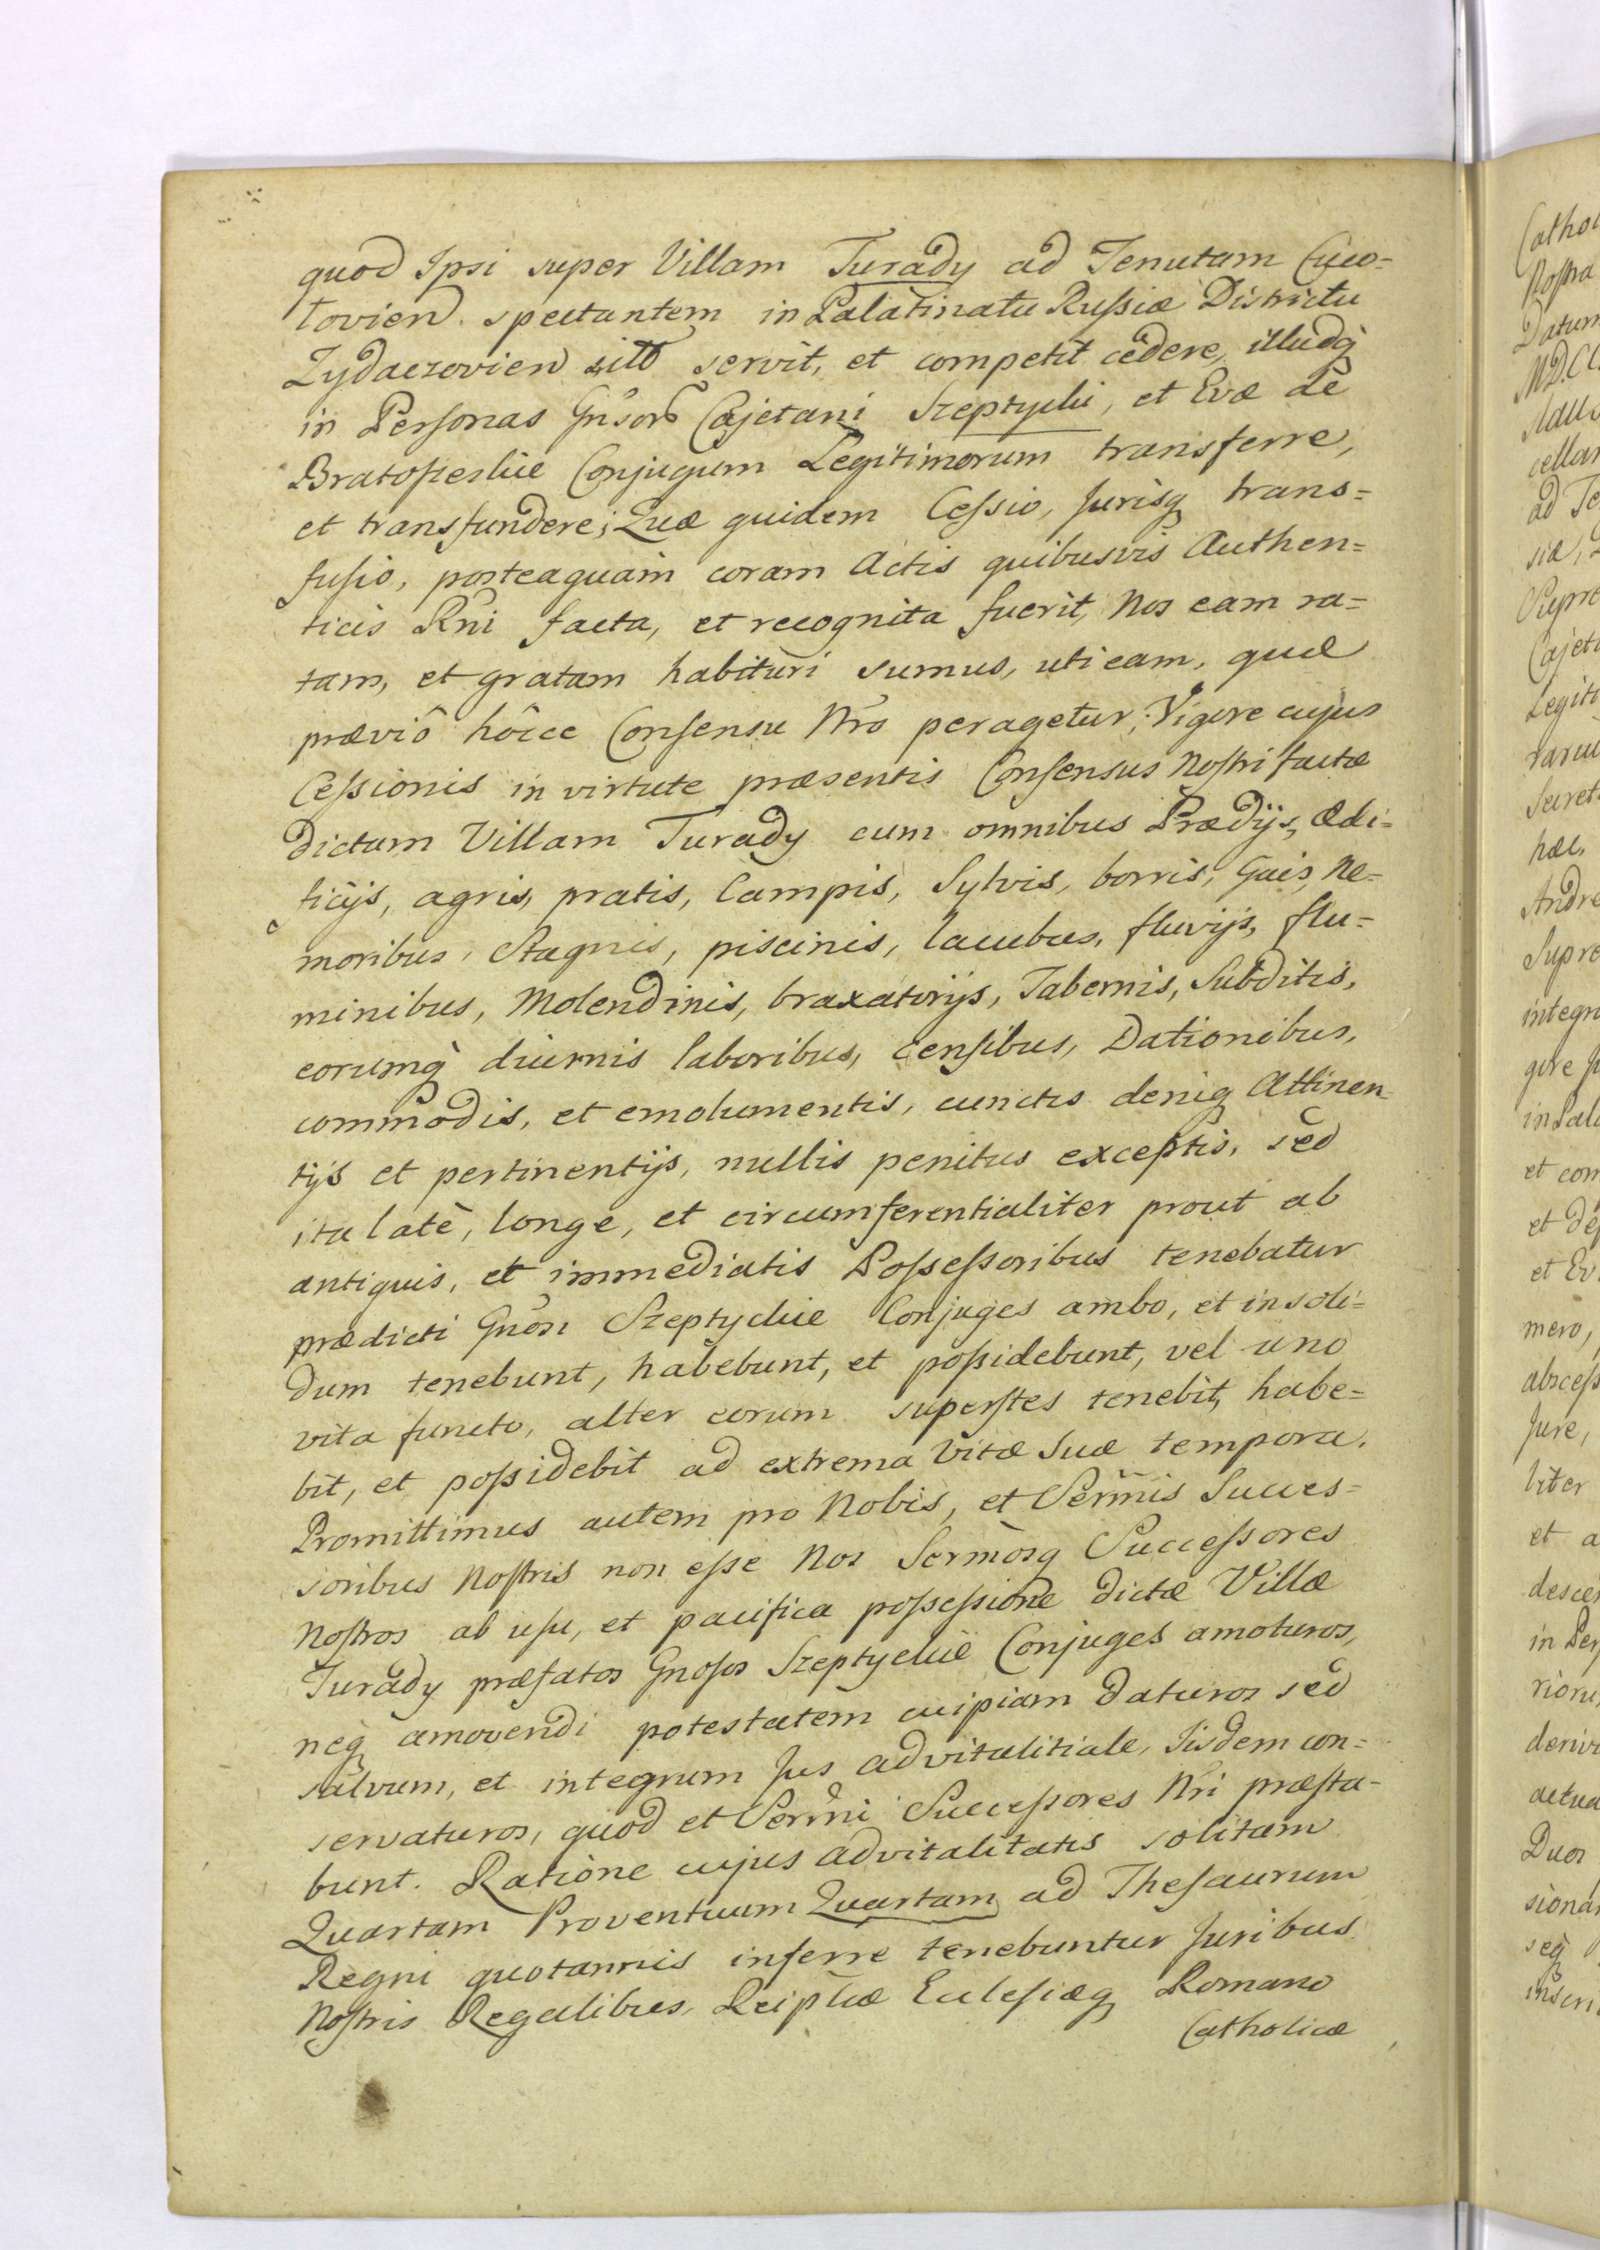 quod Ipsi super Villam Turady ad Tenutam Cuco=
tovien. spectantem in Palatinatu Russiæ Districtu
Zydaczovien sitā servit, et competit cedere, illudq̀
in Personas Gn̄sorū Cajetani Szeptycki, et Evæ de
Bratoszeskie Conjugum Legitimorum transferre,
et transfundere; Quæ quidem Cessio, Jurisq̨ trans=
fusio, posteaquam coram Actis quibusvis Authen=
ticis Rñi facta, et recognita fuerit, Nos eam ra=
tam, et gratam habituri sumus, uti eam, quæ
præviô hôcce Consensu Nr̃o peragetur; Vigore cujus
Cessionis in virtute præsentis Consensus Nostri factæ
dictam Villam Turady cum omnibus Prædijs, Ædi=
ficijs, agris, pratis, Campis, Sylvis, borris, Gais, Ne=
moribus, Stagnis, piscinis, lacubus, fluvijs, flu=
minibus, Molendinis, braxatorijs, Tabernis, Subditis,
eorumq̀ diurnis laboribus, censibus, Dationibus,
commodis, et emolumentis, cunctis deniq̨ Attinen=
tijs et pertinentijs, nullis penitus exceptis, sed
ita latè, longe, et circumferentialiter prout ab
antiquis, et immediatis Possessoribus tenebatur
prædicti Gnõsi Szeptyckie Conjuges ambo, et in soli=
dum tenebunt, habebunt, et possidebunt, vel uno
vita functo, alter eorum superstes tenebit, habe=
bit, et possidebit ad extrema Vitæ Suæ tempora.
Promittimus autem pro Nobis, et Serm̃is Succes=
soribus Nostris non esse Nos Serm̀osq̨ Successores
Nostros ab usu, et pacifica possessione dictæ Villæ
Turady præfatos Gnosos Szeptyckie Conjuges amoturos,
neq̨ amovendi potestatem cuipiam daturos sed
salvum, et integrum Jus advitalitiale, Iisdem con=
servaturos, quod et Serm̃i Successores Nr̃i præsta=
bunt. Ratione cujus advitalitatis solitam
Quartam Proventuum Quartam ad Thesaurum
Regni quotannis inferre tenebuntur Juribus
Nostris Regalibus, Reiplicæ Eclesiæq̨ Romano
Catholicæ